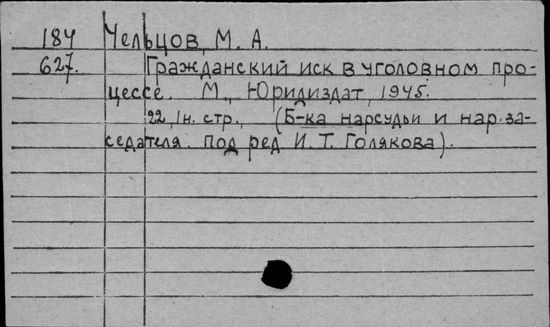 184 Чельцов, М. А.
627. Гражданский иск в уголовном про-
цессе. М., Юридиздат, 1945.
22, 1н. стр., (Б-ка нарсудьи и нар. за-
седателя. под ред И. Т. Голякова).